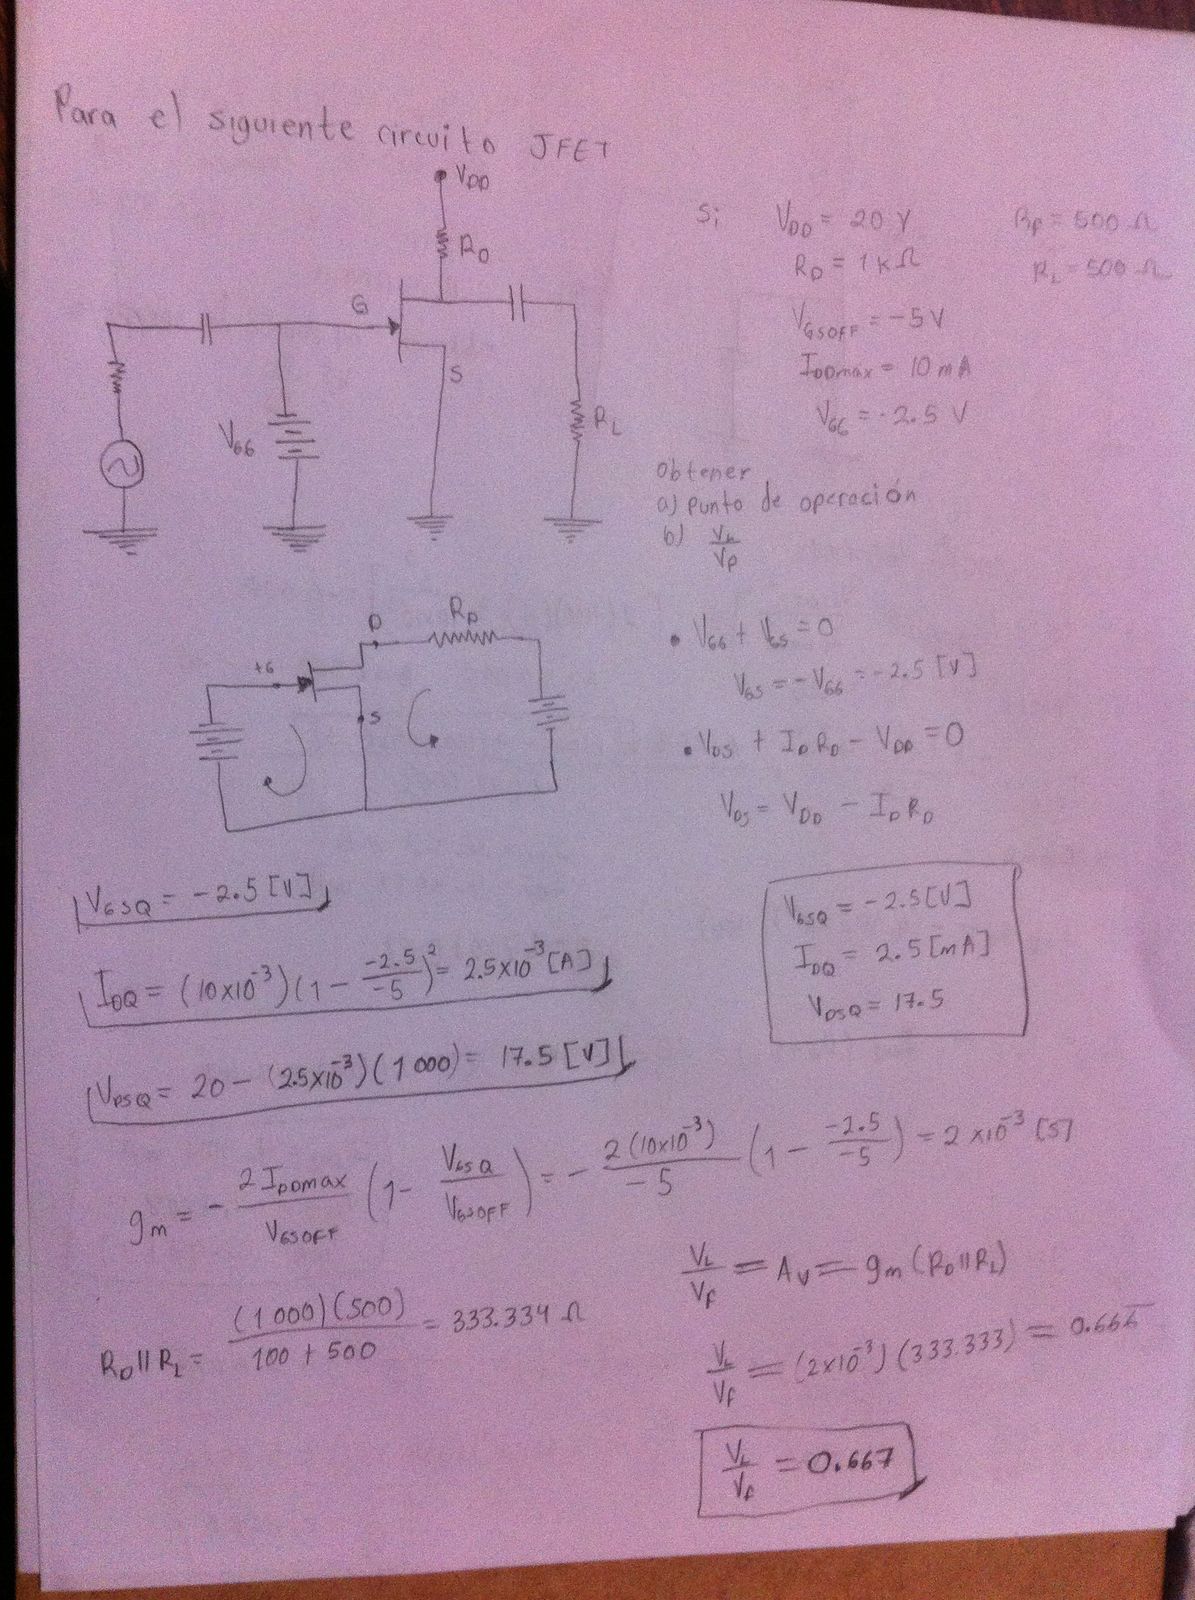 Para el siguiente circuito JFET
VDD
RD
G
S
VGG
RL
Si VDD = 20 V
RD = 1 kΩ
VGSOFF = -5 V
IDDmax = 10 mA
VGG = -2.5 V
RF = 500 Ω
RL = 500 Ω
Obtener
a) punto de operación
b) VL/VF
D RD
+G
S
• VGG + VGS = 0
VGS = -VGG = -2.5 [V]
• VDS + IDRD - VDD = 0
VDS = VDD - IDRD
VGSQ = -2.5 [V]
IDQ = (10x10⁻³)(1 - -2.5/-5)² = 2.5x10⁻³ [A]
VDSQ = 20 - (2.5x10⁻³)(1 000) = 17.5 [V]
VGSQ = -2.5 [V]
IDQ = 2.5 [mA]
VDSQ = 17.5
gm = - 2IDDmax/VGSOFF (1 - VGSQ/VGSOFF) = - 2(10x10⁻³)/-5 (1 - -2.5/-5) = 2x10⁻³ [S]
RD||RL = (1 000)(500)/100 + 500 = 333.334 Ω
VL/VF = AV = gm (RD||RL)
VL/VF = (2x10⁻³)(333.333) = 0.666
VL/VF = 0.667